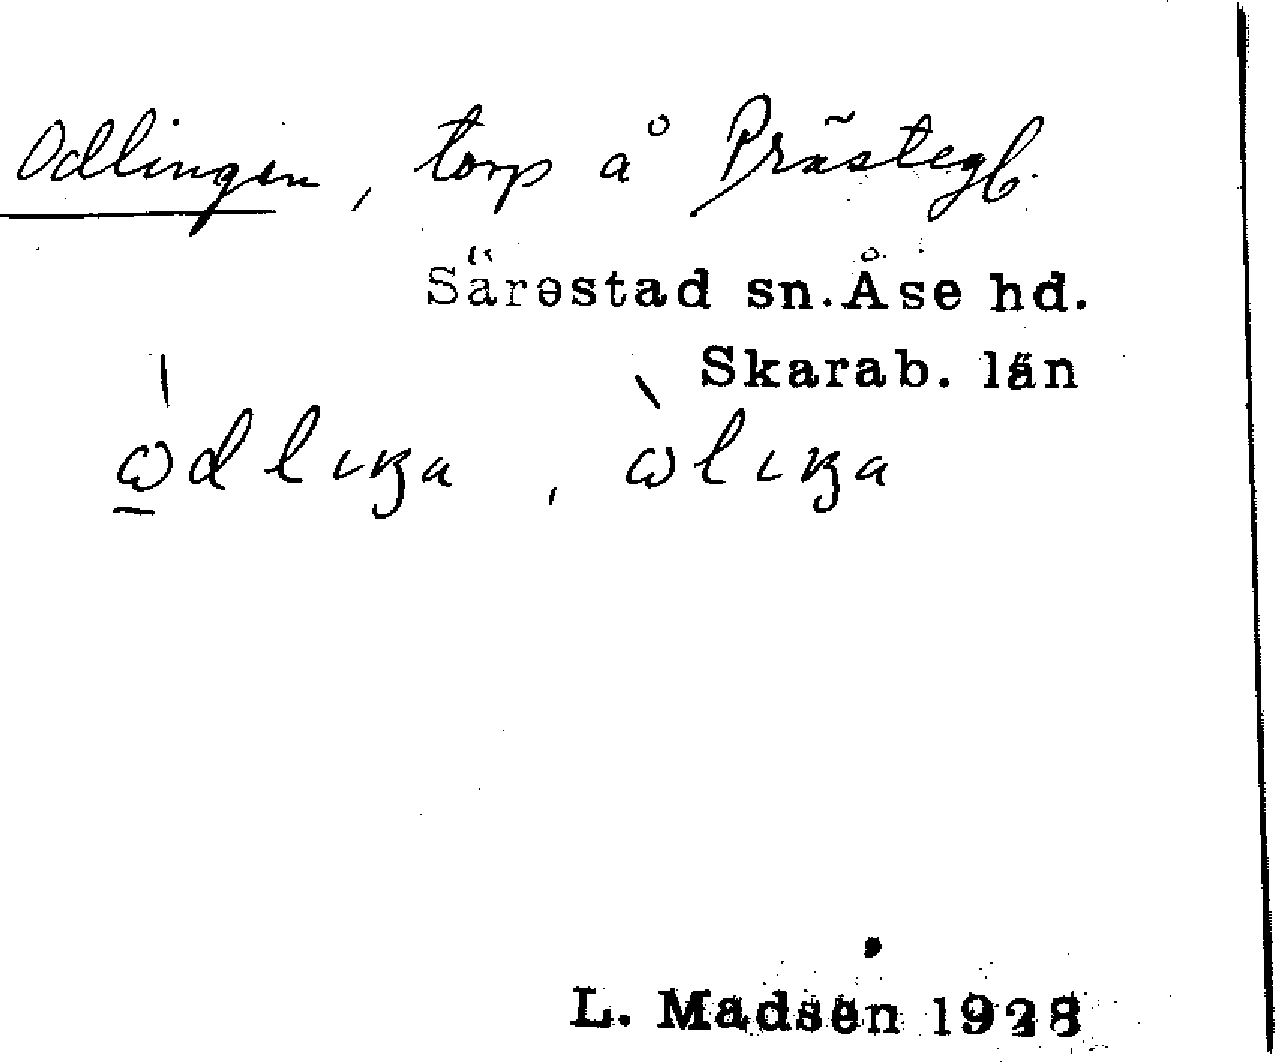 Odlingen, torp å Prästegb.
Särestad sn. Åse hd.
Skarab. län
L. Madsen 1928